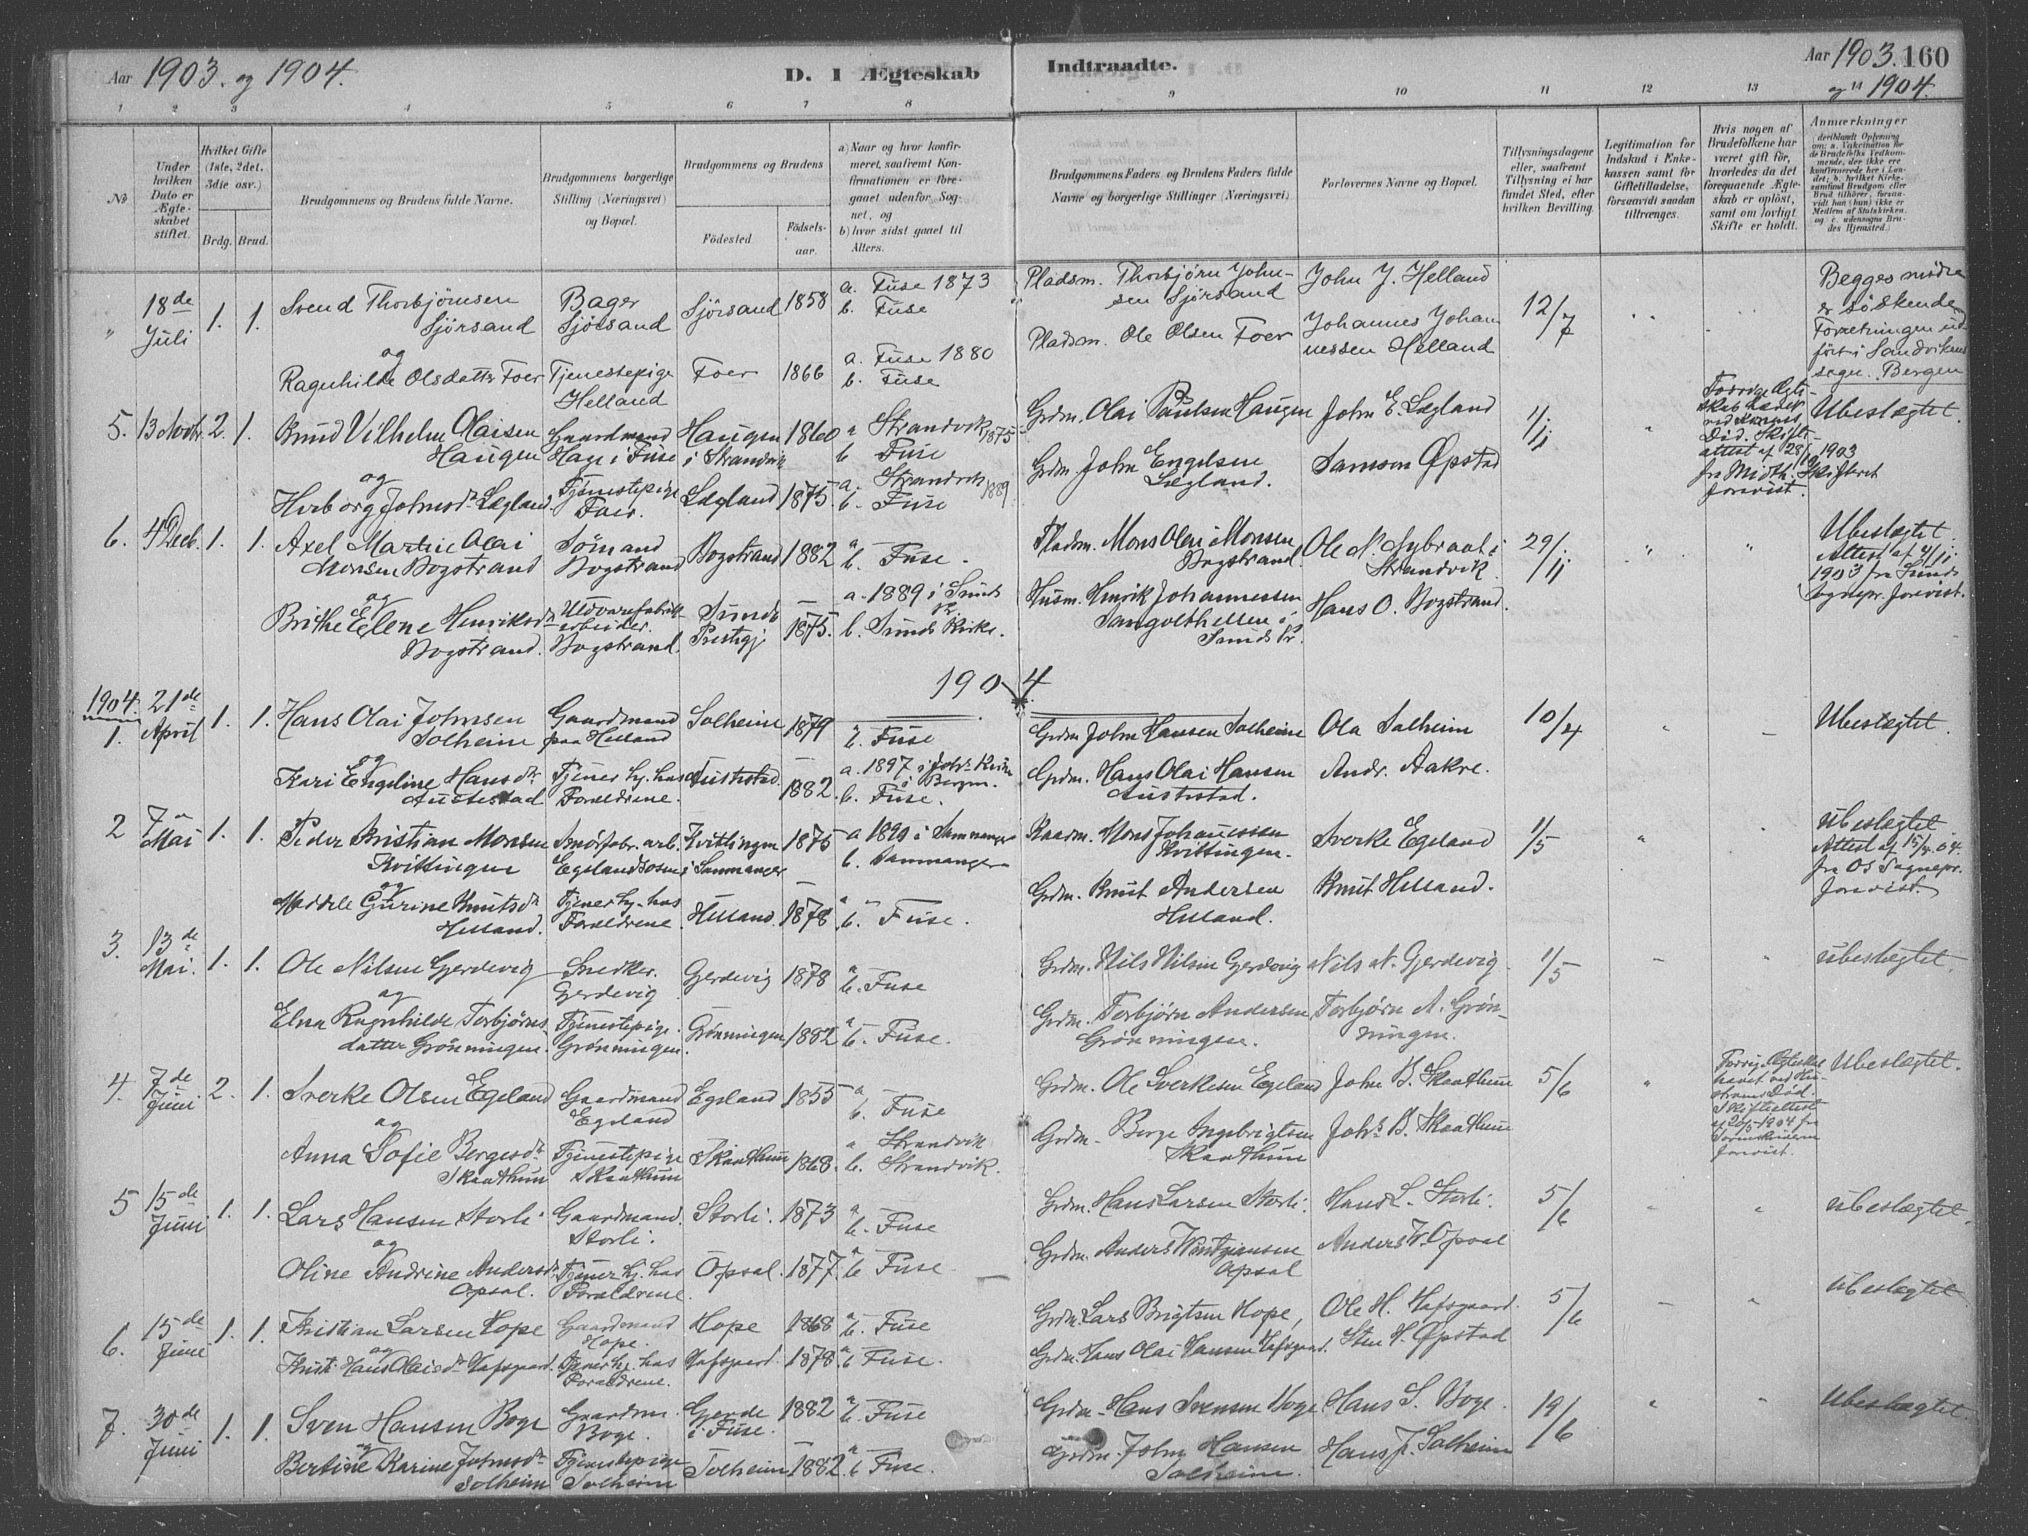 Aar 1903. og 1904.
D. 1 Ægteskab
Indtraadte.
Aar 1903. 160
og 1904.
1 2 3 4 5 6 7 8 9 10 11 12 13 14
No
Under hvilken Dato er Ægteskabet stiftet.
Hvilket Gifte (1ste, 2det, 3die osv.)
Brdg. Brud.
Brudgommens og Brudens fulde Navne.
Brudgommens borgerlige Stilling (Næringsvei) og Bopæl.
Brudgommens og Brudens
Fødested.
Fødselsaar.
a) Naar og hvor konfirmeret, saafremt Konfirmationen er foregaaet udenfor Sognet, og
b) hvor sidst gaaet til Alters.
Brudgommens Faders og Brudens Faders fulde Navne og borgerlige Stillinger (Næringsvei)
Forlovernes Navne og Bopæl.
Tillysningsdagene eller, saafremt Tillysning ei har fundet Sted, efter hvilken Bevilling.
Legitimation for Indskud i Enkekassen samt for Giftetilladelse, forsaavidt saadan tiltrænges.
Hvis nogen af Brudefolkene har været gift før, hvorledes da det foregaaende Ægteskab er opløst, samt om lovligt Skifte er holdt.
Anmærkninger
" 18de Juli 1. 1. Svend Thorbjørnsen Sjørsand Bager Sjørsand Sjørsand 1858 a. Fuse 1873 b. Fuse Pladsm. Thorbjørn Johnsen Sjørsand John J. Helland 12/7 Begges mødre er søskende Forretningen udført i Sandvikens sogn. Bergen
og
Ragnhilde Olsdatter Foer Tjenestepige Helland Foer 1866 a. Fuse 1880 b. Fuse Pladsm. Ole Olsen Foer Johannes Johannessen Helland
5. 13 Novbr. 2. 1. Knud Vilhelm Olaisen Haugen Gaardmand Hage i Fuse Haugen i Strandvik 1860 a Strandvik 1875 b Fuse Grdm. Olai Paulsen Haugen John E. Lægland 1/11 Ubeslægtet.
og
Herborg Johnsdr. Lægland Tjenestepige Foer. Lægland 1875. a. Strandvik 1889 b. Fuse Grdm. John Engelsen Lægland. Samson Øpstad
6. 4 Decb. 1. 1. Axel Martin Olai Monsen Bogstrand Sømand Bogstrand Bogstrand 1882 a b. Fuse. Pladsm. Mons Olai Monsen Bogstrand. Ole N. Nybraat i Strandvik. 29/11 Ubeslægtet. Attest af 4/11 1903 fra Sunds sognepr. forevist.
og
Brithe Elene Henriksdr. Bogstrand. Uldvarefabrikarbeider. Bogstrand. Sunds Prestegj 1875. a. 1889 i Sunds b. Sunds Kirke. Husm. Henrik Johannessen i Sunds Pr. Hans O. Bogstrand.
1904
1904. 1. 21de April 1. 1. Hans Olai Johnsen Solheim Gaardmand paa Helland Solheim 1879 a b. Fuse Grdm John Hansen Solheim Ola Solheim 10/4 Ubeslægtet.
og
Kari Engeline Hansdr. Austestad Tjener hj. hos Forældrene. Austestad 1882. a. 1897 i Joh's Kirke i Bergen. b. Fuse. Grdm. Hans Olai Hansen Austestad. Andr. Aakre.
2 7 Mai 1. 1. Peder Kristian Monsen Kvittingen Smørfabr. arb. Egelandsosen Kvittingen i Samnanger 1875 a 1890 i Samnanger b. Samnanger Mons Johannessen Kvittingen. Sverke Egeland 1/5 ubeslægtet Attest af 15/4.04. fra Os Sognepr. forevist
og
Gurine Knutsdr. Helland. Tjener hj. hos Forældrene Helland. 1878. a b. Fuse. Grdm. Knut Andersen Helland. Knut Helland.
3. 13de Mai. 1. 1. Ole Nilsen Gjerdevig Snedker. Gerdevig Gerdevig 1878 a b. Fuse Grdm. Nils Nilsen Gerdevig Nils N. Gerdevig 1/5 ubeslægtet.
og
Elna Ragnhilde Torbjørnsdatter Grønningen. Tjenestepige. Grønningen. Grønningen 1882 a b. Fuse. Grdm. Torbjørn Andersen Grønningen. Torbjørn A. Grønningen.
4. 7de Juni 2. 1. Sverke Olsen Egeland Gaardmand Egeland Egeland 1855 a b. Fuse Grdm. Ole Sverkesen Egeland John B. Skaathun 5/6 Ubeslægtet.
og
Anna Sofie Bergesdr. Skaathun Tjenestepige Skaathun Skaathun 1868. a Strandvik b. Strandvik. Grdm. Berge Ingebrigtsen Skaathun Johs. B. Skaathun
5 15de Juni 1. 1. Lars Hansen Storli Gaardmand. Storli. Storli. 1873 a b. Fuse Grdm. Hans Larsen Storli. Hans L. Storli. 5/6 ubeslægtet.
og
Oline Andrine Andersdr. Opsal. Tjener hj. hos Forældrene. Opsal. 1877. a b Fuse. Grdm. Anders Opsal Anders Opsal
6. 15de Juni 1. 1. Kristian Larsen Hope Gaardmand Hope. Hope 1868 a b. Fuse Grdm. Lars Brigtsen Hope, Ole H. Hafsgaard. 5/6 ubeslægtet
og
Hans Olaisdr. Hafsgaard. Tjener hj. hos Forældrene. Hafsgaard. 1878. a b Fuse. Grdm. Hans Olai Hansen Hafsgaard. Sten H. Øpstad
7. 30de Juni 1. 1. Sven Hansen Boge Gaardm. Boge. Gjerde i Fuse. 1882 a b. Fuse Grdm. Hans Svensen Boge Hans S. Boge. 19/6 Ubeslægtet.
og
Bertine Karine Johnsdr. Solheim Tjenestepige Solheim Solheim 1882 a b Fuse. Grdm. John Hansen Solheim. Hans J. Solheim